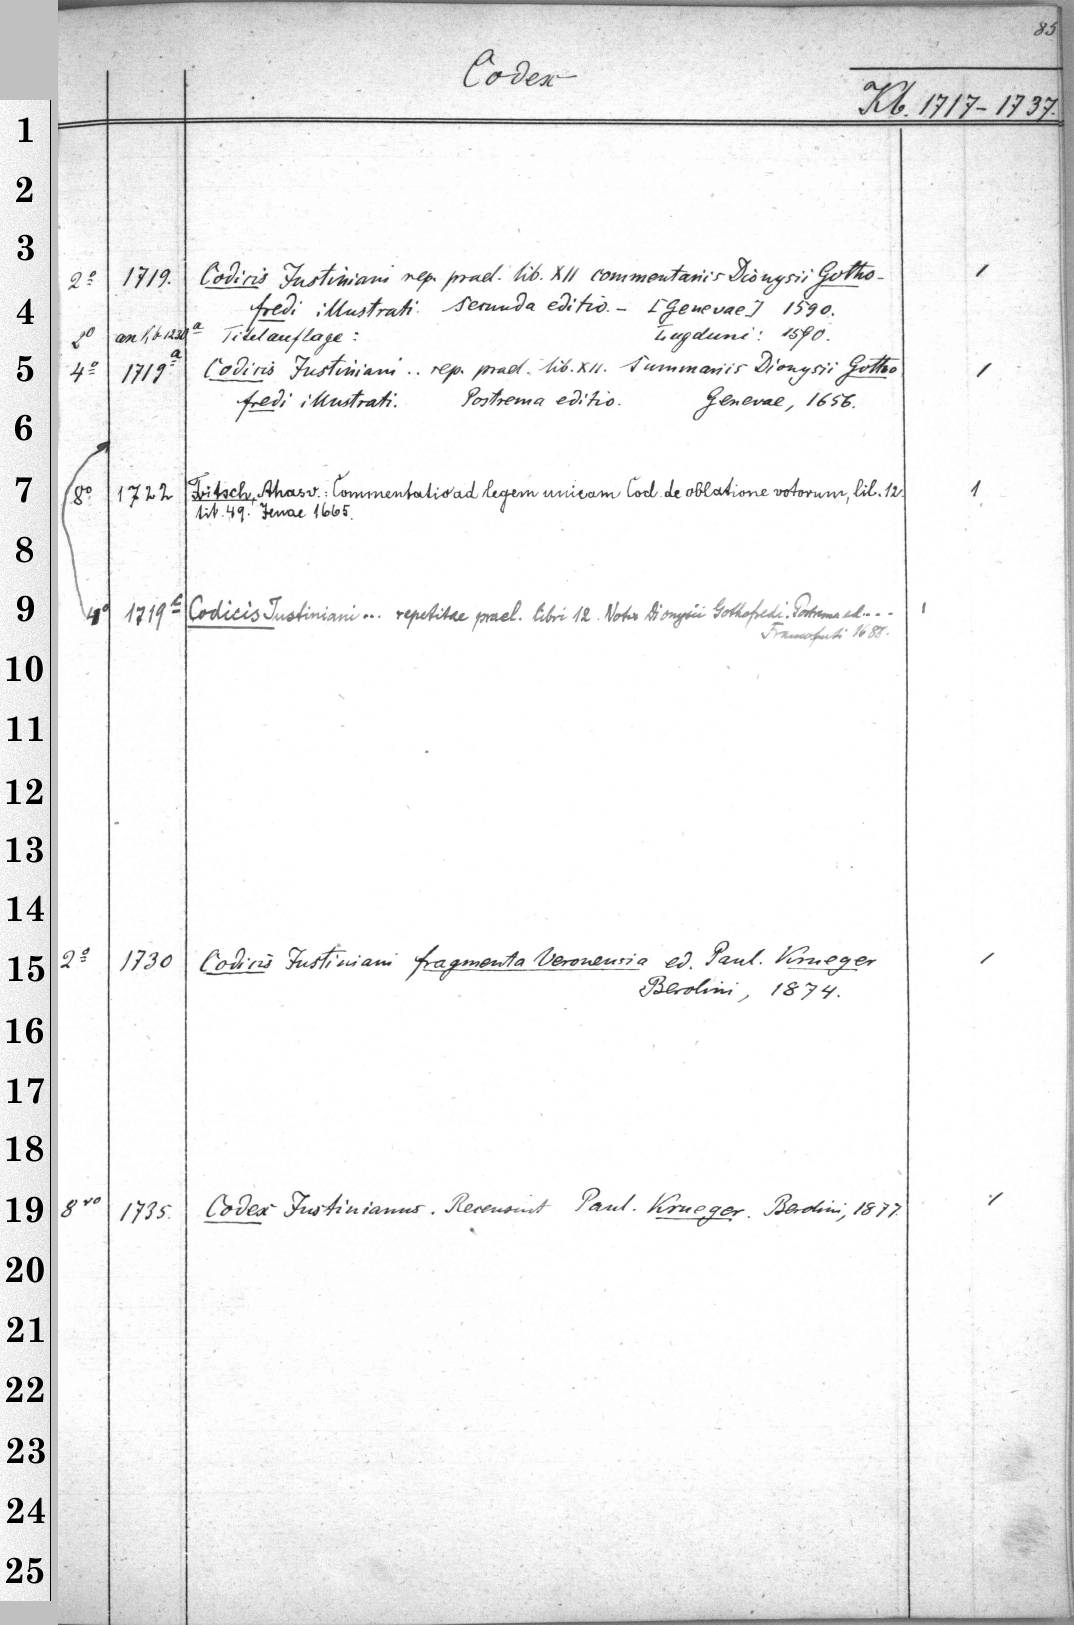 85
Codex
Kb. 1717-1737.
1
2
3
2º 1719. Codicis Justiniani rep. prael. lib. XII commentariis Dionysii Gotho- 1
4 fredi illustrati. Secunda editio. - [Genevae] 1590.
2º an Kb 1230a Titelauflage: Lugduni: 1590.
5 4º 1719a Codicis Justiniani .. rep. prael. lib. XII. Summariis Dionysii Gotho 1
fredi illustrati. Postrema editio. Genevae, 1656.
6
7 8º 1722 Fritsch, Ahasv.: Commentatio ad legem unicam Cod. de oblatione votorum, lib. 12. 1
tit. 49. Jenae 1665.
8
9 4º 1719b Codicis Justiniani ... repetitae prael. libri 12. Notis Dionysii Gothofredi. Postrema ed... 1
Francofurti 1688.
10
11
12
13
14
15 2º 1730 Codicis Justiniani fragmenta Veronensia ed. Paul. Krueger 1
Berolini, 1874.
16
17
18
19 8vo 1735. Codex Justinianus. Recensuit Paul. Krueger. Berolini, 1877. 1
20
21
22
23
24
25